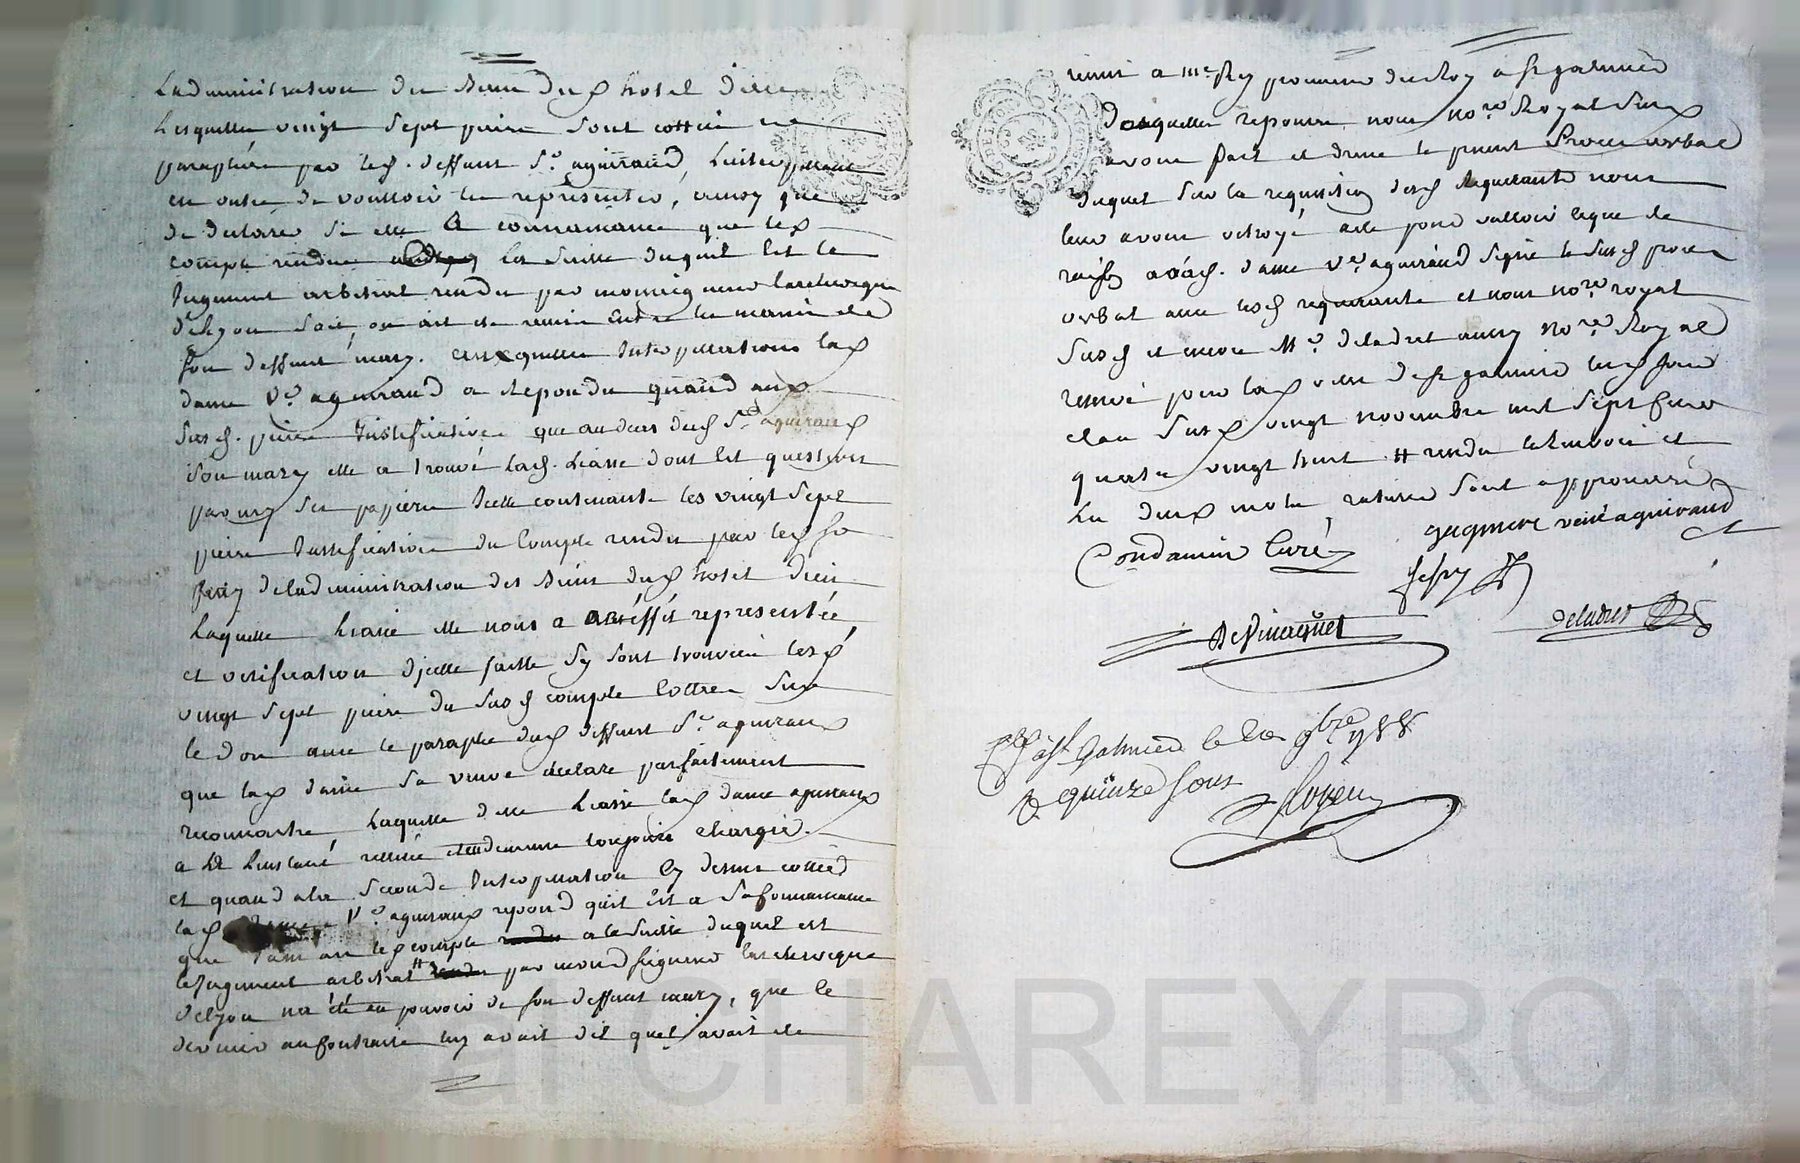 L'administration des Biens dud hotel dieu
Lesquelles vingt sept pieces sont cottées et
paraphées par led. deffunt Sr. aguiraud, L'interpellant
en outre de voulloir les representer, aussy que
de declarer si elle a connaissance que led
compte rendu la suitte duquel est le
Jugement arbitral rendu par monseigneur l'archeveque
de Lyon soit, ou ait ete remis Entre les mains de
son deffunt mary. auxquelles Interpellations lad
dame Ve. aguiraud a Repondu quand aux
susd. pieces Justificatives que au deces dud Sr. aguiraud
son mary elle a trouvé lad. Liasse dont est question
parmy ses papiers Icelle contenante les vingt sept
pieces Justificatives du Compte rendu par led
de l'administration des Biens dud hotel Dieu
Laquelle Liasse elle nous a representée
et verification d'icelle faitte s'y sont trouvées lesd
vingt sept pieces du susd compte Cottées sur
le dos avec le paraphe dud deffunt Sr. aguiraud
que lad dame sa veuve declare parfaitement
reconnaitre Laquelle d. Liasse lad dame aguiraud
a a L'instant retirée et en demeure toujours chargée.
et quand a la seconde Interpellation cy dessus cottée
lad Ve. aguiraud repond qu'il est a sa connaissance
que led compte a la suitte duquel est
le Jugement arbitral # par monseigneur l'archeveque
de Lyon n'a été au pouvoir de son deffunt mary, que ce
dernier au contraire luy avait dit qu'il l'avait
remis a Me. Rey procureur du Roy a St galmier
Desquelles reponses nous nore. Royal susd
avons fait et dressé le present Procès verbal
Duquel sur la requisition desd Requerants nous
leur avons octroyé acte pour valloir ce que de
raison a lad. dame Ve. aguiraud signé le susd procès
verbal avec lesd requerants et nous nore. royal
susd et encore Me. deladret aussy nore. Royal
reservé pour lad ville de St galmier
clau susd vingt novembre mil sept Cent
quatre vingt huit # rendu
Les deux mots raturés sont approuvés
Condamin Curé gagniere veuve aguiraud
deladret
Cllé a St Galmier le 9bre 1788
R quinze sous